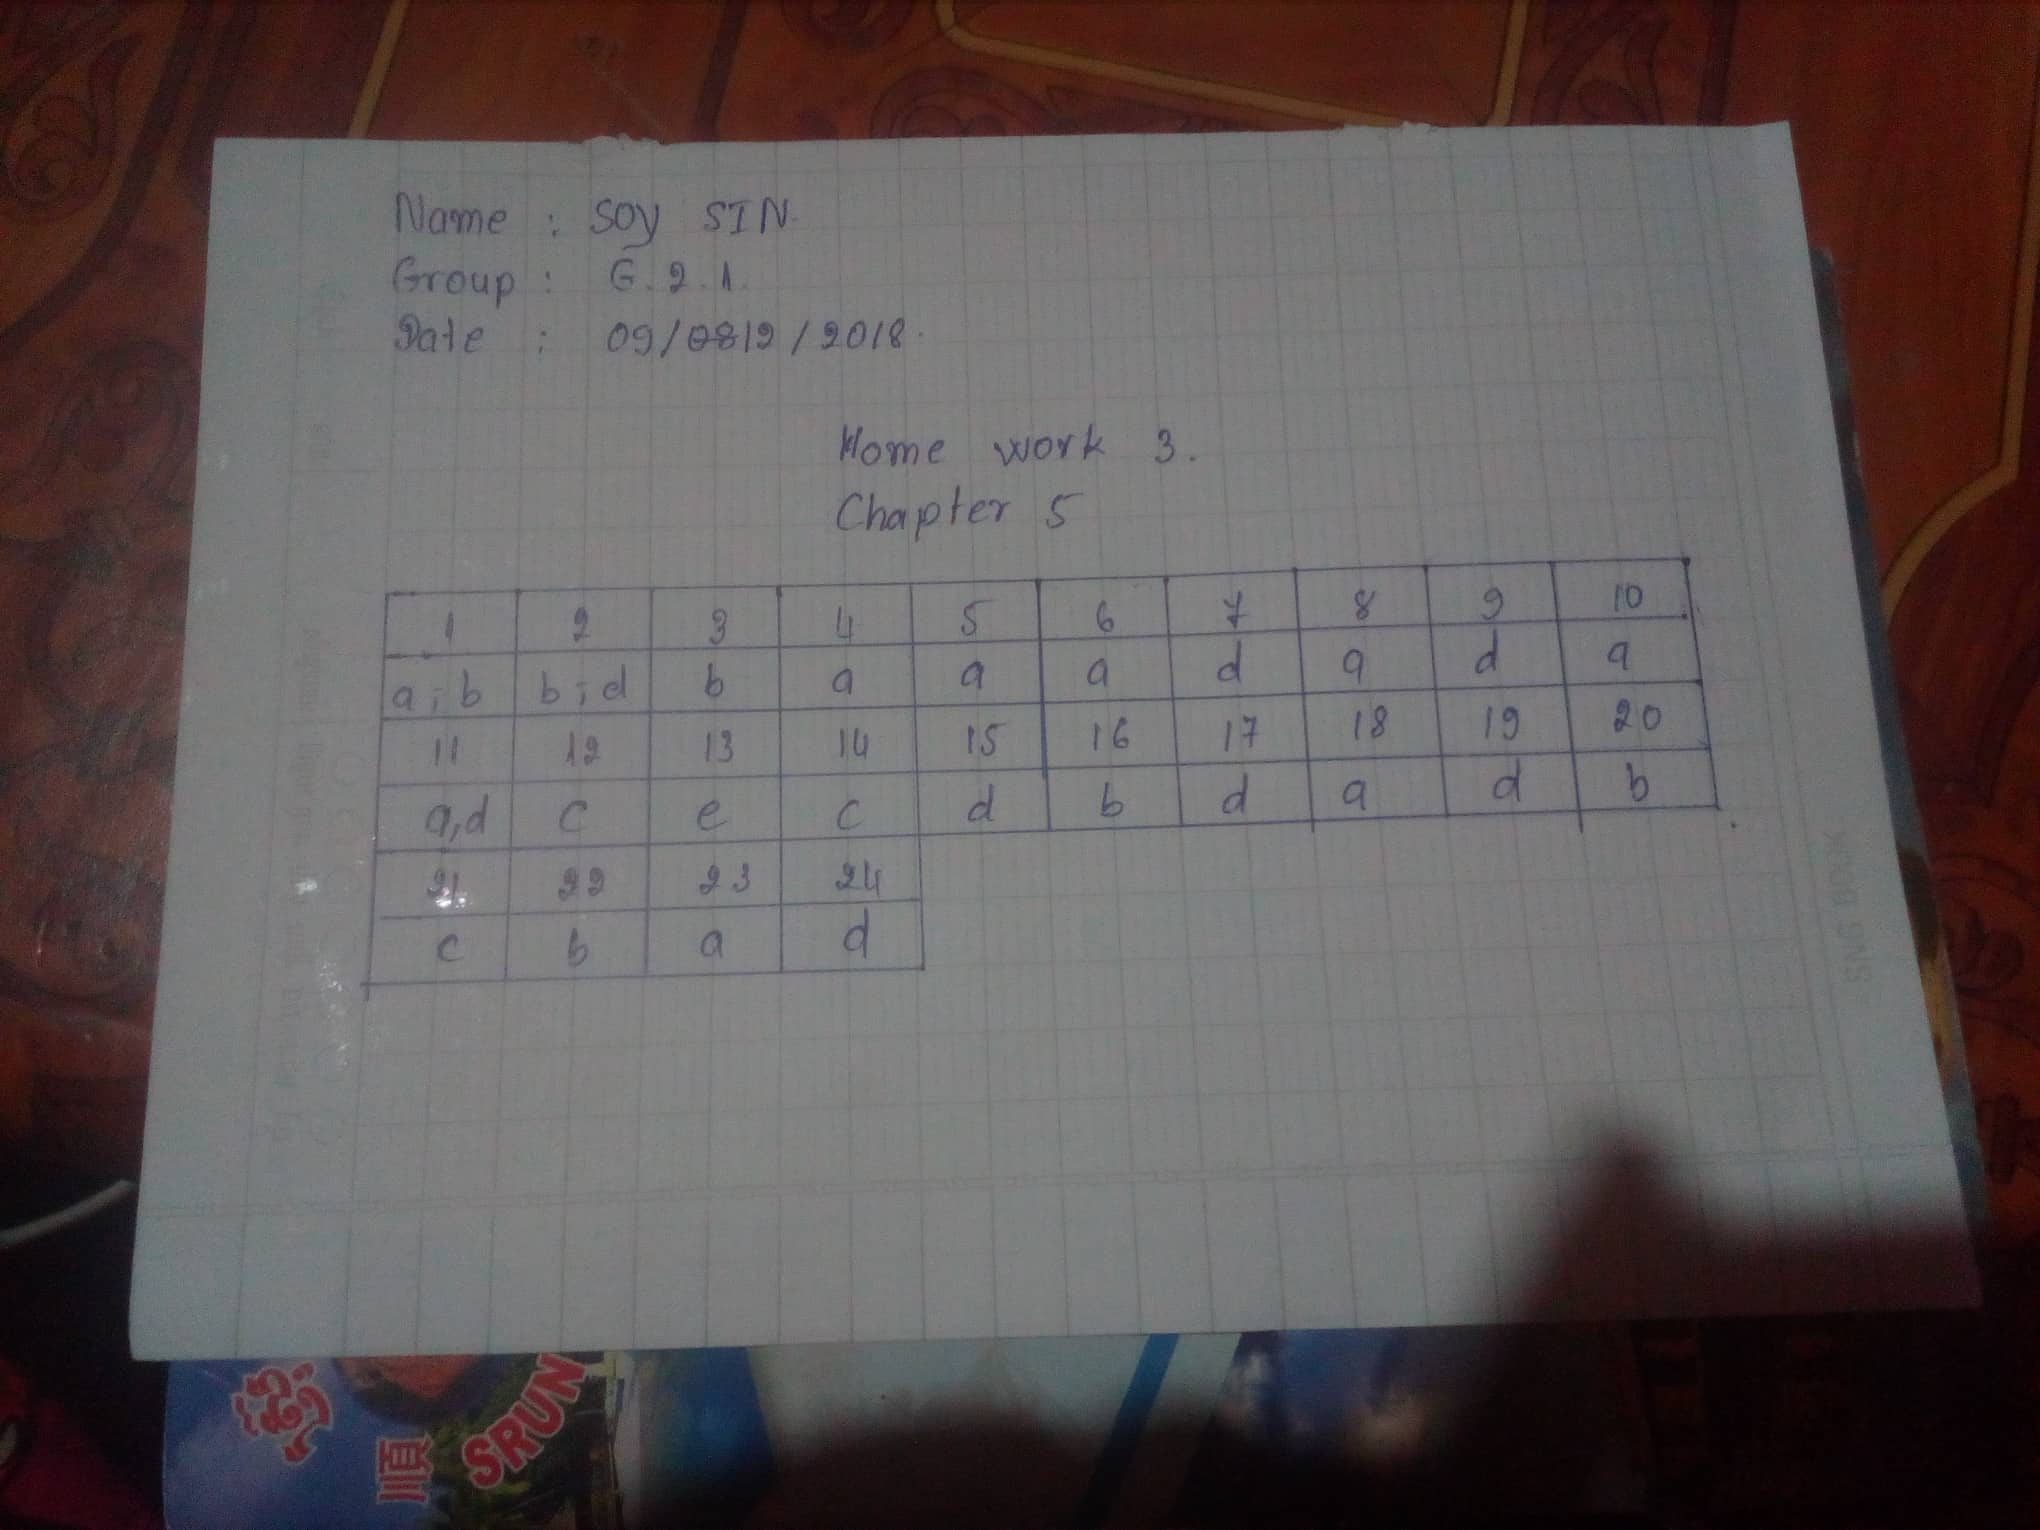 Name : SOY SIN.
Group : G.2.1.
Date : 09/0812/2018.
Home work 3.
Chapter 5
1 2 3 4 5 6 7 8 9 10
a ; b b ; d b a a a d a d a
11 12 13 14 15 16 17 18 19 20
a,d c e c d b d a d b
21 22 23 24
c b a d
順 SRUN